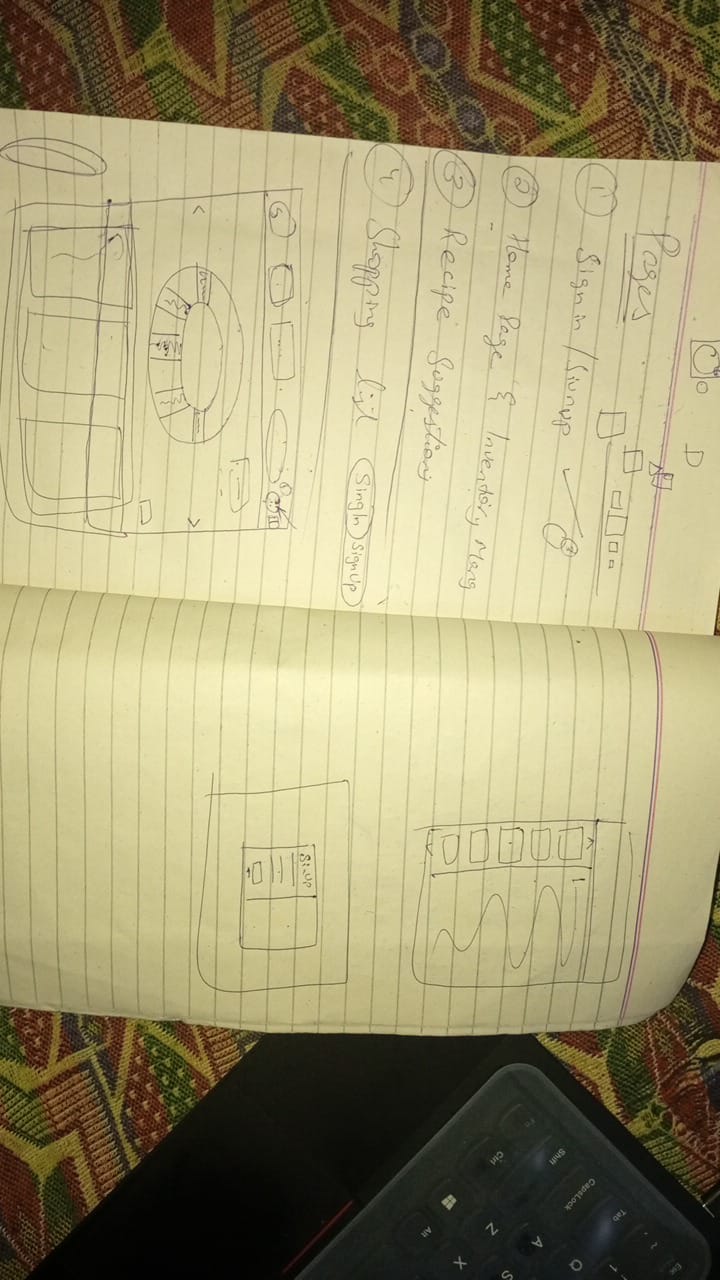 Pages
① Sign in / Siunup ✓
② Home Page & Inventory Mang
③ Recipe Suggestions
④ Shopping list
SingIn SignUp
SiUP
Esc
~ `
1
Tab
Q
CapsLock
A
S
Shift
Z
X
Ctrl
Alt
Fn